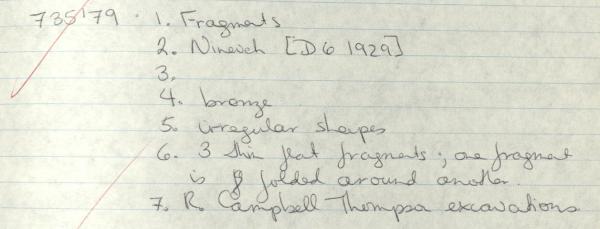 735'79. 1. Fragments
2. Nineveh [D6 1929]
3.
4. bronze
5. irregular shapes
6. 3 thin flat fragments; one fragment
is folded around another.
7. R. Campbell Thompson excavations